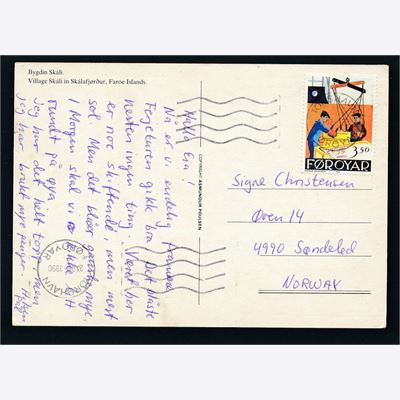 Bygdin Skáli.
Village Skáli in Skálafjørður, Faroe Islands.
Hallo Eva!
Nå er vi endelig framme.
Fergeturen gikk bra. Det blåste
nesten ingen ting. Været her
er noe skiftende, men mest
sol. Men det blåser ganske mye.
I Morgen skal vi sykle litt
rundt på øya
Jeg har det helt topp, men
jeg har brukt mye penger. H.
COPYRIGHT ASMUNDUR POULSEN
3,50
FØROYAR
TÓRSHAVN
FØROYAR
1990
Signe Christensen
Øven 14
4990 Søndeled
NORWAY